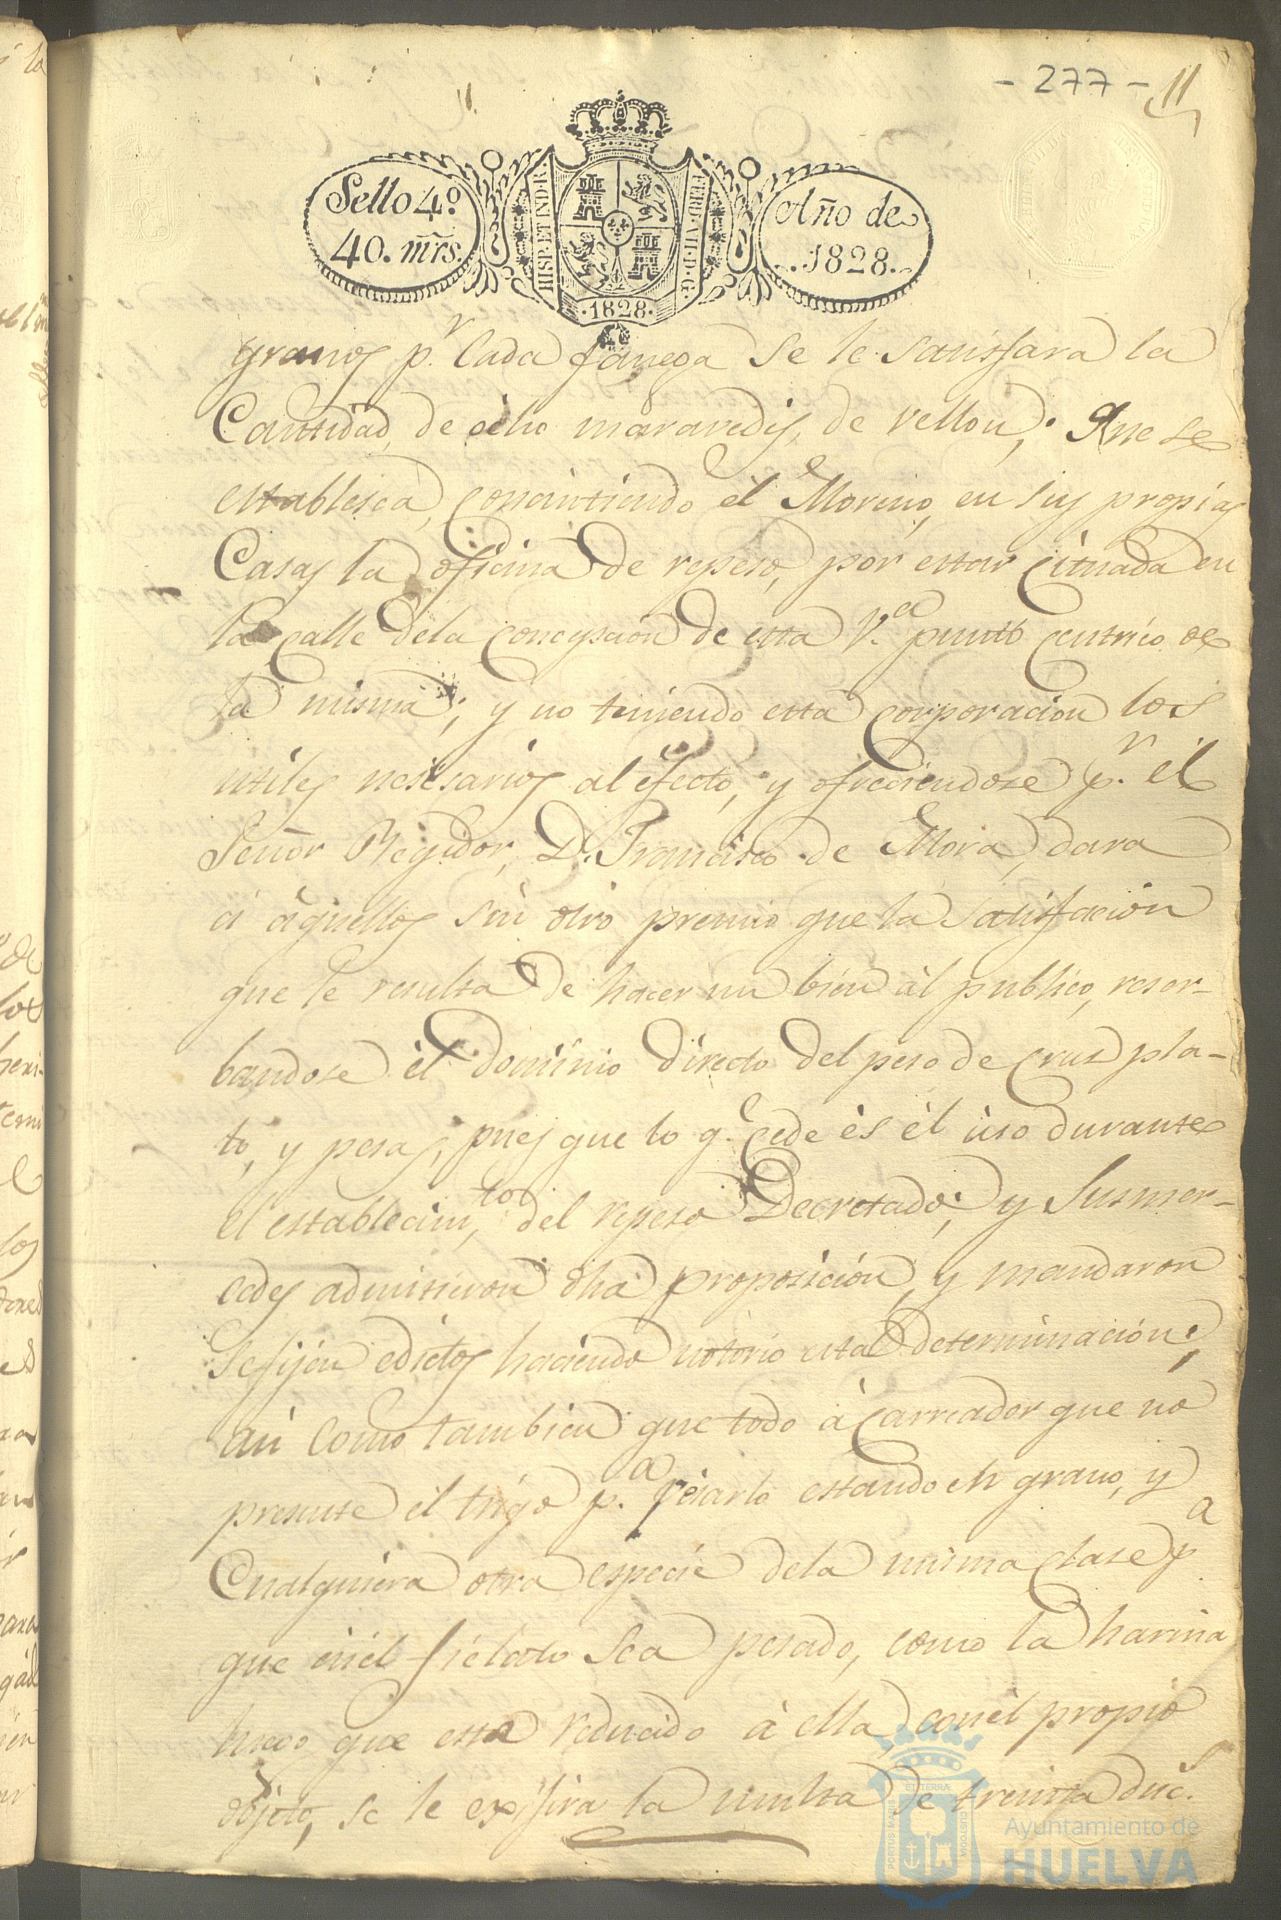 - 277 - 11
Sello 4º
40. mrs.
HISP. ET IND. R.
FERD. VII. D. G.
Año de
1828.
·1828·
granos pr. Cada fanega se le satisfara la
Cantidad de ocho maravedis, de vellon; Que se
establesca, consintiendo èl Moreno, en sus propias
Casas la oficina de repeso, por estar cituada en
la calle dela Concepcion de esta V.a punto centrico de
la misma; y no teniendo esta corporacion los
utiles nesesarios al efecto, y ofreciendose pr. èl
Señor Regidor, D. Francisco de Mora, dara
à àquellos sin otro premio que la satisfacion
que le resulta de hacer un bien àl publico, reser-
bandose èl dominio directo del peso de Crus pla-
to, y pesas, pues que lo q.e cede ès èl uso durante
el establecim.to del repeso Decretado; y Susmer-
cedes admitieron dha proposicion, y mandaron
se fijen edictos haciendo notorio esta determinacion;
asi Como tambien que todo àcarreador que no
presente èl trigo p.a pesarlo estando eh grano, y
Cualquiera otra especie dela misma clase p.a
que en èl fielato sea pesado, como la harina
luego que este reducido à ella, con èl propio
objeto, se le exijira la multa de treinta duc.s
PORTUS MARIS ET TERRÆ CUSTODIA
Ayuntamiento de
HUELVA